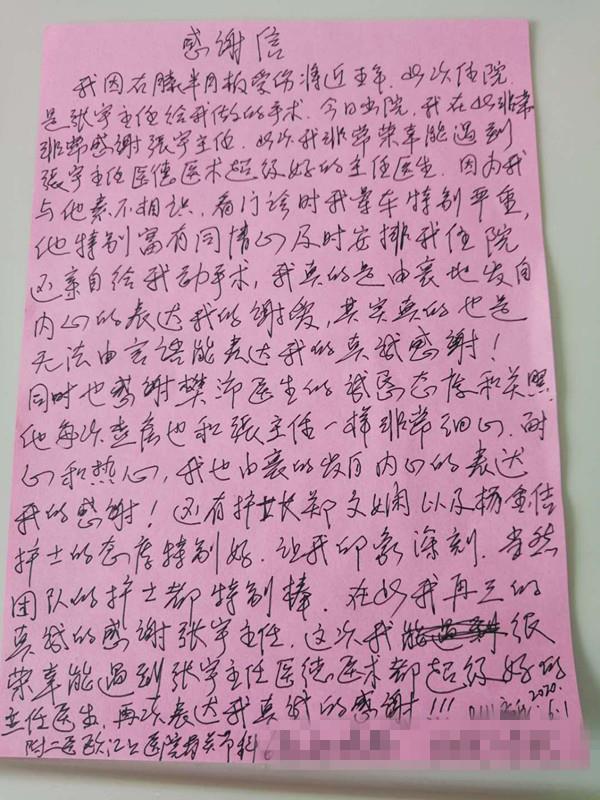 感谢信
我因右膝半月板受伤将近三年,此次住院
是张宇主任给我做的手术。今日出院,我在此非常
非常感谢张宇主任,此次我非常荣幸能遇到
张宇主任医德医术超级好的主任医生,因为我
与他素不相识,看门诊时我等车特别严重,
他特别富有同情心及时安排我住院
还亲自给我动手术,我真的是由衷地发自
内心的表达我的谢爱,其实真的也是
无法由言语能表达我的真诚感谢!
同时也感谢樊沛医生的诚恳态度和关照
他每次查房也和张主任一样非常细心、耐
心和热心,我也由衷的发自内心的表达
我的感谢!还有护士长郑文娴以及杨金佳
护士的态度特别好,让我印象深刻,当然
团队的护士都特别棒,在此我再三的
真诚的感谢张宇主任,这次我很
荣幸能遇到张宇主任医德医术都超级好的
主任医生,再次表达我真诚的感谢!!!
2020.
6.1
附二医瓯江口医院骨关节科